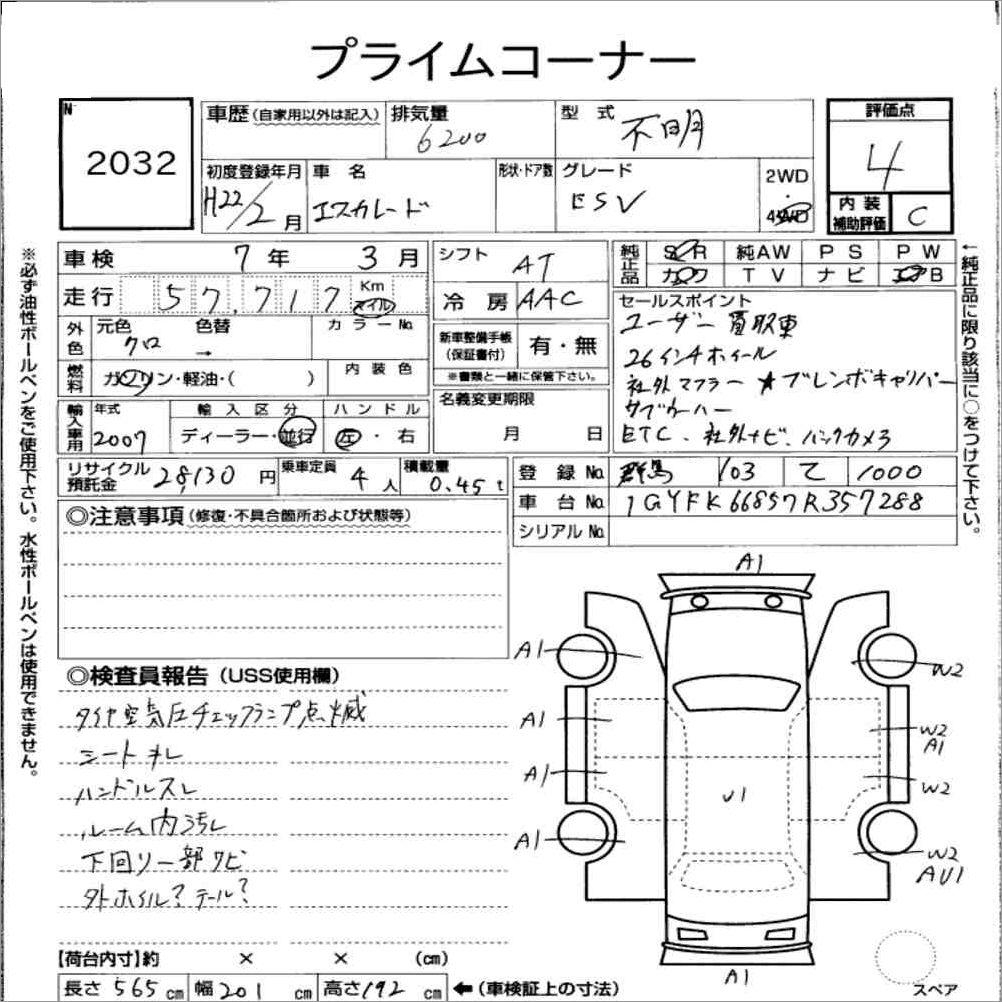 プライムコーナー
N 2032
車歴(自家用以外は記入) 排気量 6200 型式 不明
評価点 4
初度登録年月 H22/2月 車名 エスカレード 形状・ドア数 グレード ESV 2WD・4WD
内装補助評価 C
車検 7年 3月 シフト AT 純正品 SR 純AW PS PW
走行 57,717 Km マイル 冷房 AAC カワ TV ナビ エアB
外色 元色 クロ 色替 → カラーNo.
新車整備手帳(保証書付) 有・無
※書類と一緒に保管下さい。
セールスポイント
ユーザー買取車
26インチホイール
社外マフラー ★ブレンボキャリパー
サブウーハー
ETC、社外ナビ、バックカメラ
燃料 ガソリン・軽油・( ) 内装色
名義変更期限 月 日
輸入車用 年式 2007 輸入区分 ディーラー・並行 ハンドル 左・右
リサイクル預託金 28,130円 乗車定員 4人 積載量 0.45t
登録No. 群馬 103 て 1000
車台No. 1GYFK66857R357288
シリアルNo.
◎注意事項(修復・不具合箇所および状態等)
◎検査員報告(USS使用欄)
タイヤ空気圧チェックランプ点滅
シートオレ
ハンドルスレ
ルーム内汚レ
下回リ一部サビ
外ホイル?テール?
A1
A1
W2
A1
W2
A1
A1
W2
U1
A1
W2
AU1
A1
スペア
【荷台内寸】約 × × (cm)
長さ 565cm 幅 201cm 高さ 192cm ←(車検証上の寸法)
※必ず油性ボールペンをご使用下さい。水性ボールペンは使用できません。
←純正品に限り該当に○をつけて下さい。